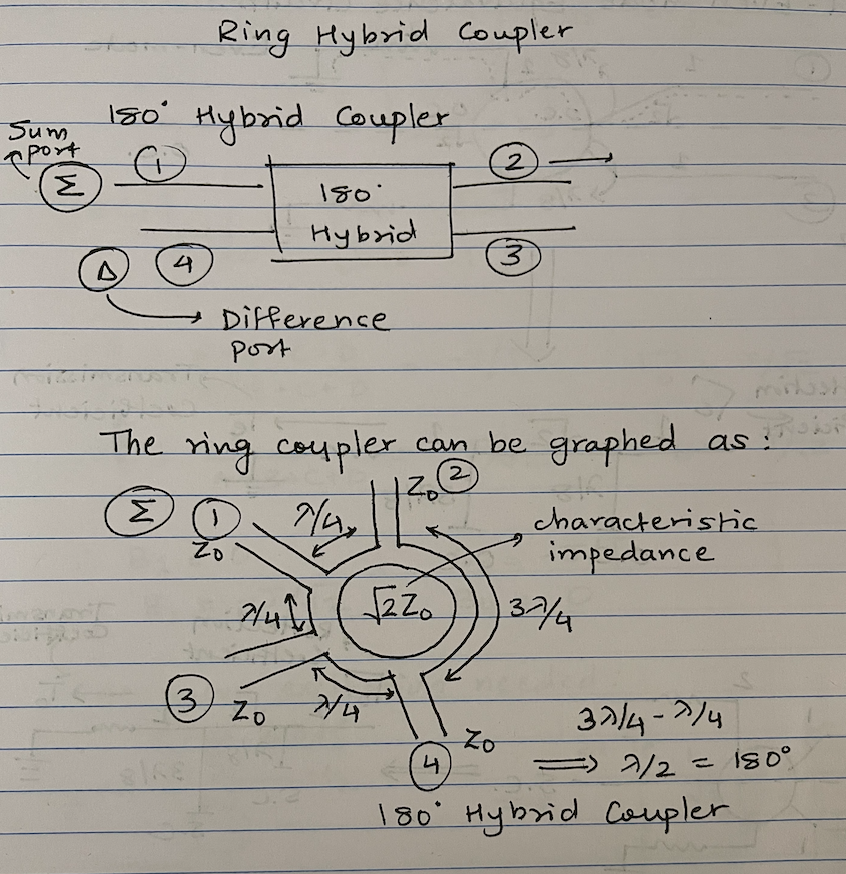 Ring Hybrid Coupler
180° Hybrid Coupler
Sum
port
Σ
1
2
180°
Hybrid
Δ
4
3
Difference
port
The ring coupler can be graphed as:
Σ
1
Z0
λ/4
Z0
2
characteristic
impedance
λ/4
√2Z0
3λ/4
3
Z0
λ/4
4
Z0
3λ/4 - λ/4
⟹ λ/2 = 180°
180° Hybrid Coupler